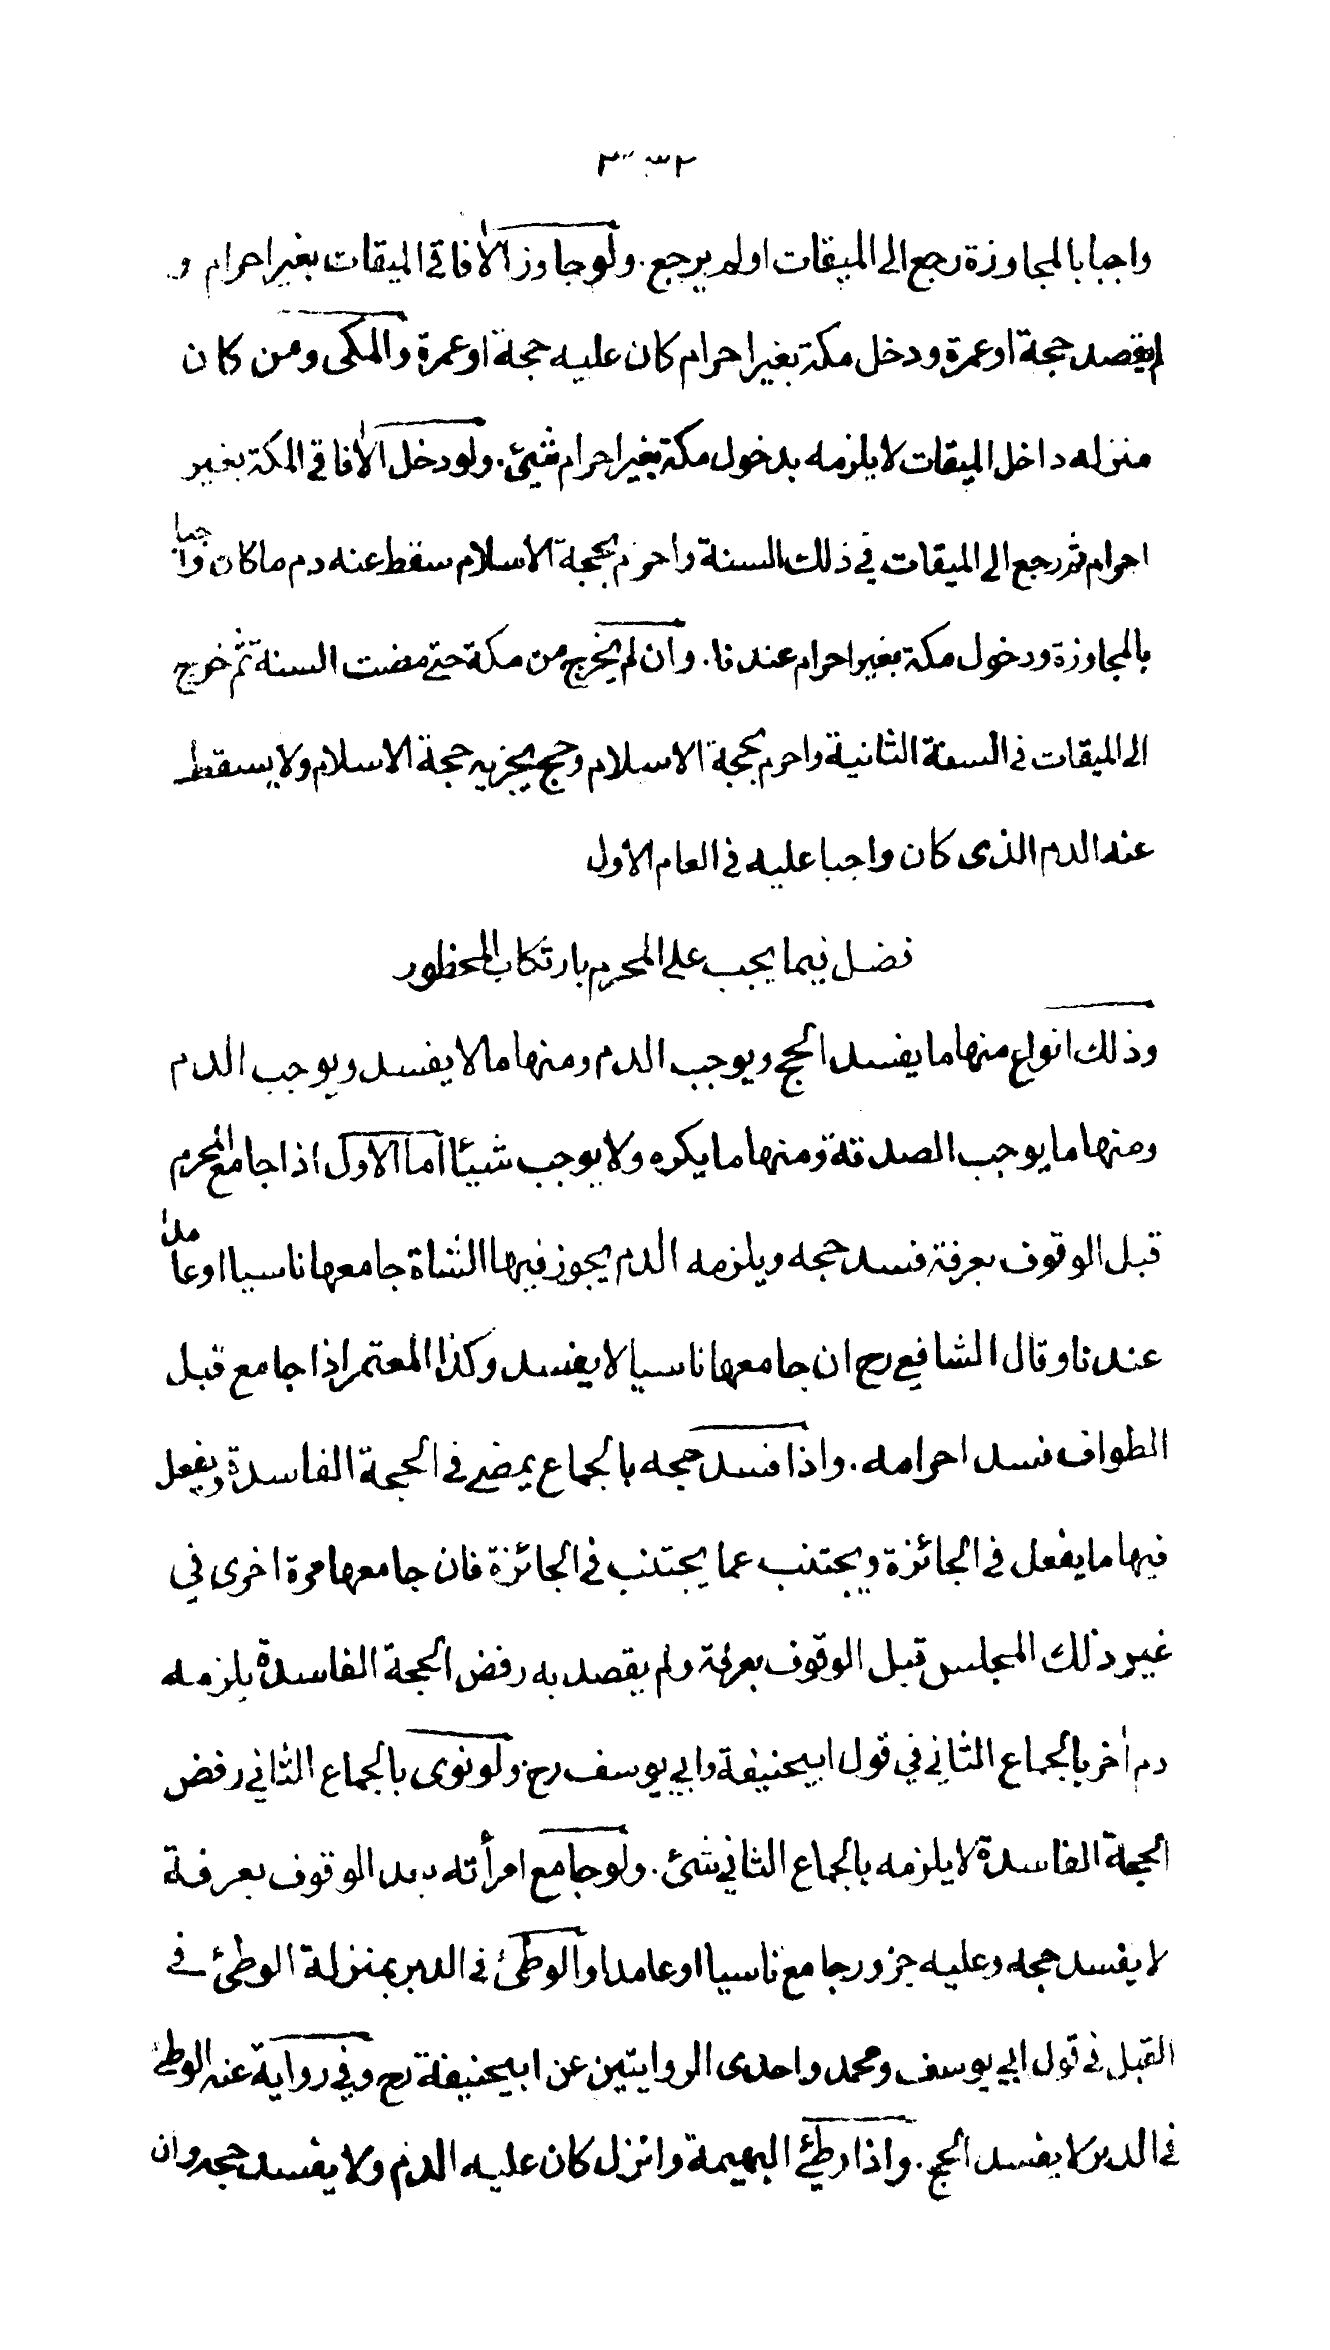 ٢٣٢
واجبا بالمجاوزة رجع الى الميقات اولم يرجع. ولو جاوز الأفاقي الميقات بغير احرام و
لم يقصد حجة اوعمرة ودخل مكة بغير احرام كان عليه حجة اوعمرة والمكى ومن كان
منزله داخل الميقات لا يلزمه بدخول مكة بغير احرام شيئ. ولودخل الأفاقي المكة بغير
احرام ثم رجع الى الميقات في ذلك السنة واحرم بحجة الاسلام سقط عنه دم ما كان واجبا
بالمجاوزة ودخول مكة بغير احرام عندنا. وان لم يخرج من مكة حتى مضت السنة ثم خرج
الى الميقات فى السنة الثانية واحرم بحجة الاسلام وحج يجزيه حجة الاسلام ولا يسقط
عنه الدم الذى كان واجبا عليه فى العام الأول
فصل فيما يجب على المحرم بارتكاب المحظور
وذلك انواع منها ما يفسد الحج ويوجب الدم ومنها مالا يفسد ويوجب الدم
ومنها ما يوجب الصدقة ومنها ما يكره ولا يوجب شيئا اما الاول اذا جامع المحرم
قبل الوقوف بعرفة فسد حجه ويلزمه الدم يجوز فيها الشاة جامعها ناسيا اوعامدا
عندنا وقال الشافعي رح ان جامعها ناسيا لا يفسد وكذا المعتمر اذا جامع قبل
الطواف فسد احرامه. واذا فسد حجه بالجماع يمضي فى الحجة الفاسدة ويفعل
فيها ما يفعل فى الجائزة ويجتنب عما يجتنب فى الجائزة فان جامعها مرة اخرى في
غير ذلك المجلس قبل الوقوف بعرفة ولم يقصد به رفض الحجة الفاسدة يلزمه
دم أخر بالجماع الثاني في قول ابيحنيفة وابي يوسف رح ولو نوى بالجماع الثاني رفض
الحجة الفاسدة لا يلزمه بالجماع الثاني شئ. ولو جامع امرأته بعد الوقوف بعرفة
لا يفسد حجه وعليه جزور جامع ناسيا اوعامدا والوطئ فى الدبر بمنزلة الوطئ فى
القبل فى قول ابي يوسف ومحمد واحدى الروايتين عن ابيحنيفة رح وفي رواية عنه الوطئ
فى الدبر لا يفسد الحج. واذا وطئ البهيمة وانزل كان عليه الدم ولا يفسد حجه وان